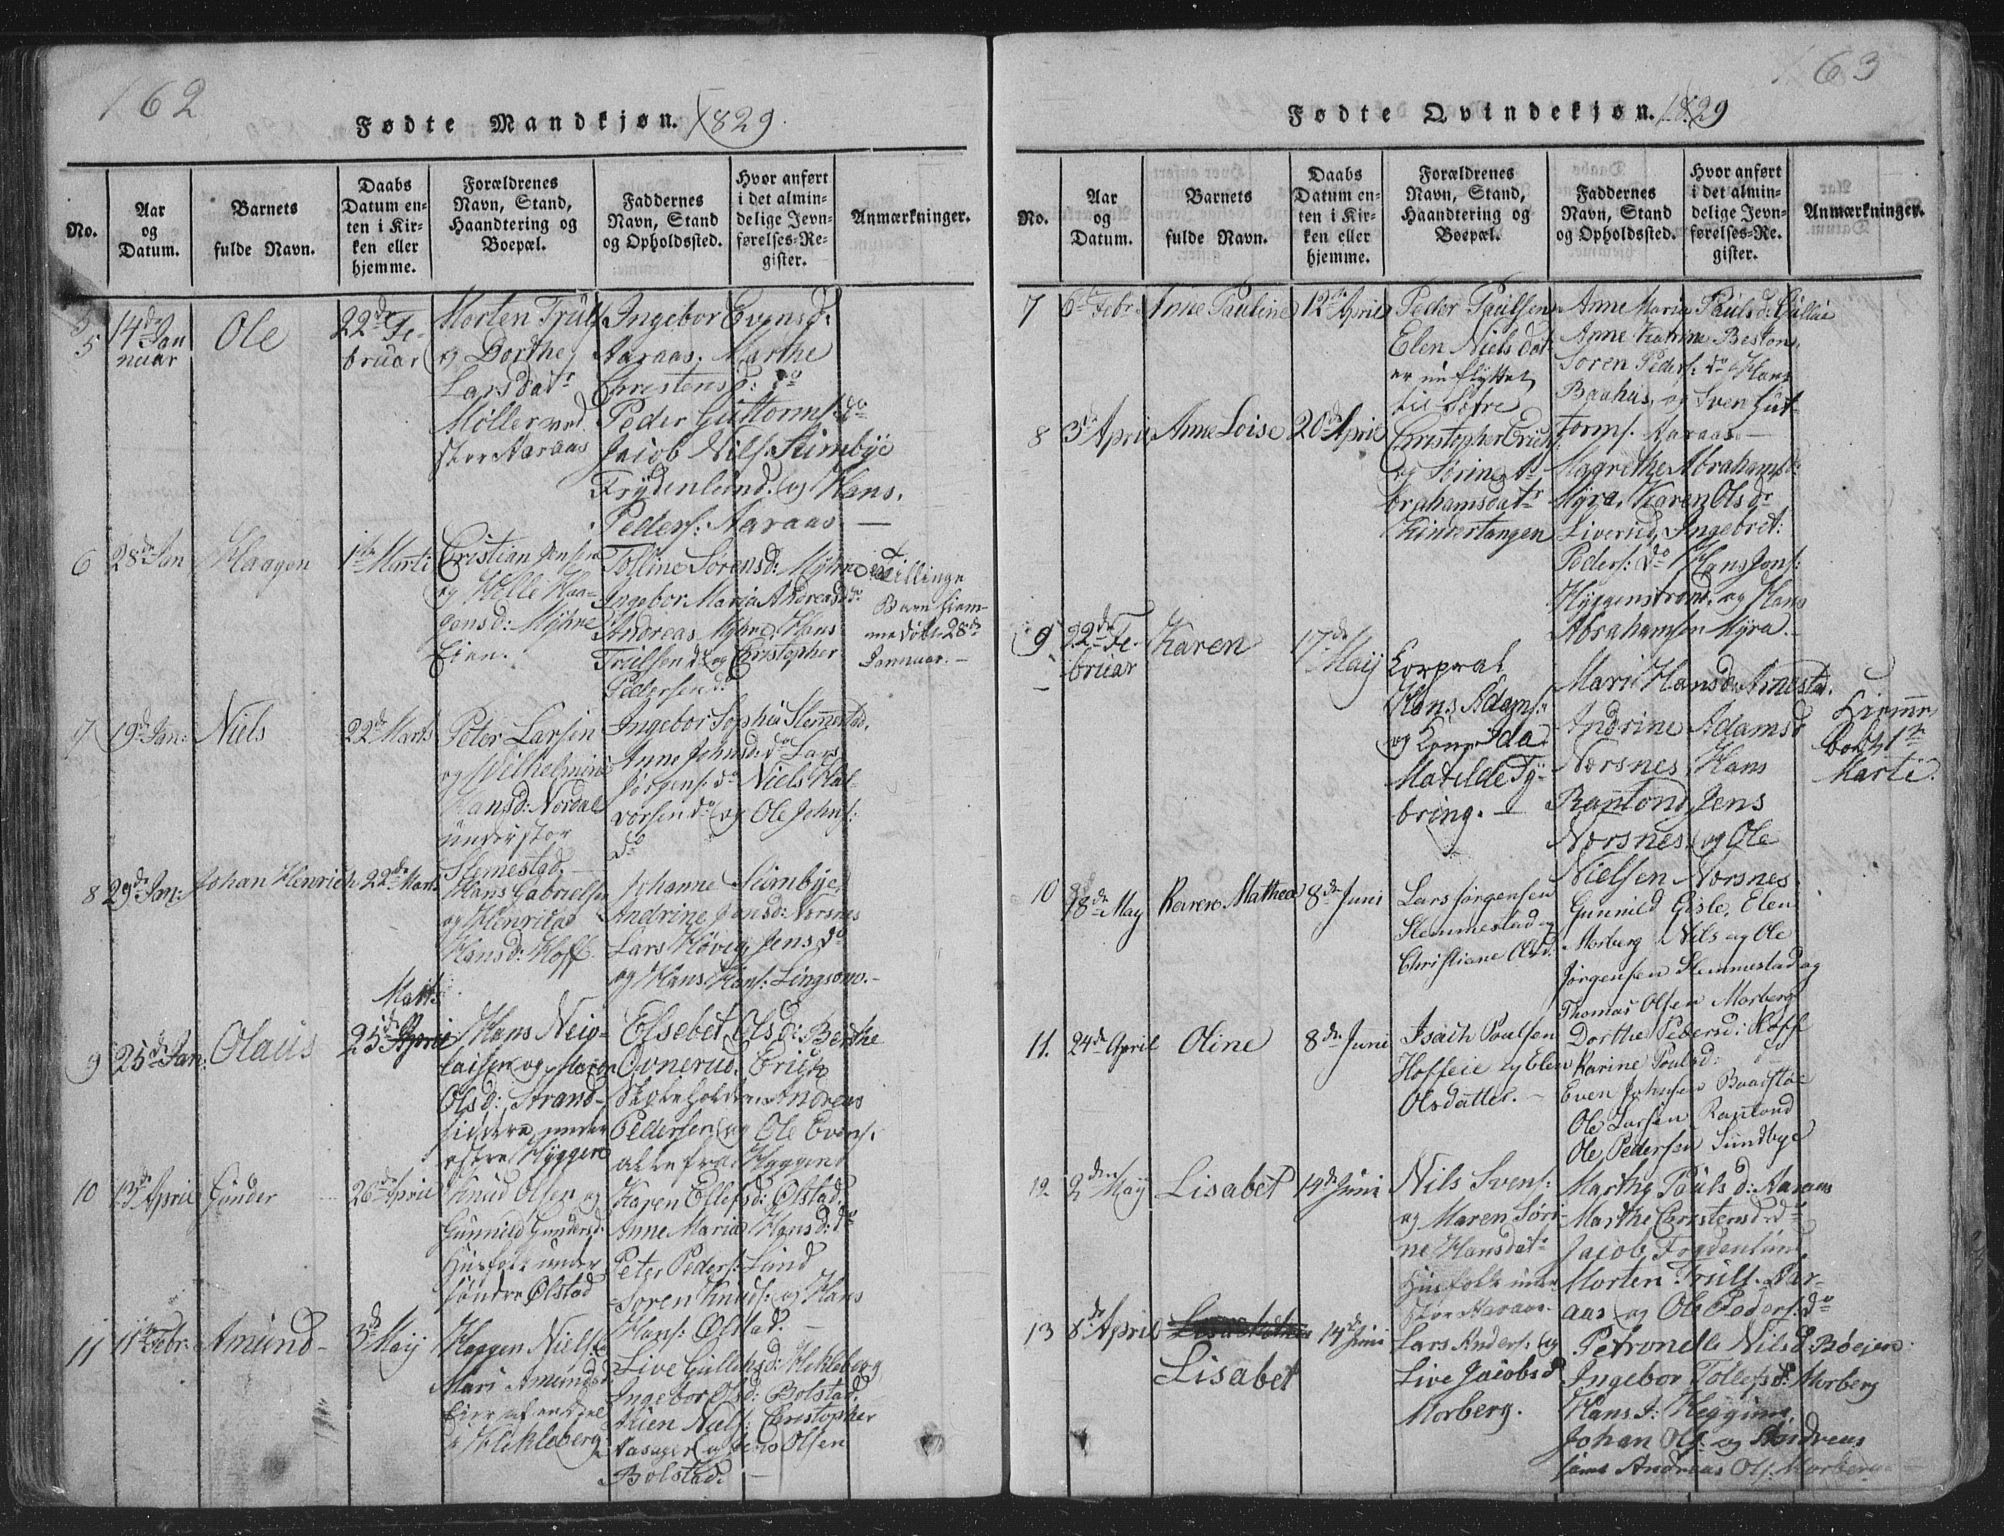 162
Fødte Mandkjøn. 1829.
No.
Aar
og
Datum.
Barnets
fulde Navn.
Daabs
Datum en-
ten i Kir-
ken eller
hjemme.
Forældrenes
Navn, Stand,
Haandtering og
Boepæl.
Faddernes
Navn, Stand
og Opholdssted.
Hvor anført
i det almin-
delige Jevn-
førelses-Re-
gister.
Anmærkninger.
5
14de Jan
nuar
Ole
22de Fe-
bruar
Morten Truls.
og Dorthe
Larsdatr
Møller ved
stor Aaraas
Ingebor Evensd:
Aaraas. Marthe
Christensd: do
Peder Guttorms. do
Jacob Nils. Sumbye
Frydenlund. og Hans.
Peders: Aaraas. —
6
28de Jan
Haagen
1ste Marti
Cristian Jensen
og Helli Haa-
gensd: Myhre
Eien.
Tolline Sørensd: Myhre
Ingebor Maria Andreasd: do
Andreas Myhre, Hans
Trulsen do og Christopher
Pedersen do
Tvillinge
Barn hjem-
me døbt 28de
Januar. —
7
19de Jan:
Niels
22de Marts
Peter Larsen
og Wilhelmine
Hansd: Nordal
under stor
Slemestad. —
Ingebor Sophia Slemestad,
Anne Johnsd. do Lars
Jørgens. do Niels Hal-
vorsen do og Ole Johns:
do
8
29de Jan:
Johan Henrich
22de Marts
Hans Gabrielsen
og Henrica
Hansd: Hoff.
Johanne Sumbye,
Andrine Jonsd: Norsnes
Lars Høvig, Jens do
og Hans Hans. Lingsom. —
9
25de Jan:
Olaus
Marts
25de April
Hans Neip-
laisen og Maren
Olsd: Strand-
siddere under
østre Hyggen
Elsebet Olsd: Berthe
Ovnerud. Erich
Skoleholder Andreas
Pedersen og Ole Evens.
alle fra Hyggen
10
13de April
Gunder
26de April
Knud Olsen og
Gunnild Gundersd.
Husfolk under
søndre Ølstad
Karen Ellefsd: Ølstad,
Anne Maria Hansd: do
Peter Peders: Lund
Soren Knuds: og Hans
Hans: Ølstad. —
11
11te Febr:
Amund
3de May
Haagen Niels.
Mari Amundsd:
Eier af en deel
i Hekleberg
Live Gulliksd: Hekleberg
Ingebor Olsd: Bolstad.
Alien Niels: Christopher
Aasager og Jens Olsen
Bolstad. —
163
Fødte Qvindekjøn. 1829
No.
Aar
og
Datum.
Barnets
fulde Navn.
Daabs
Datum en-
ten i Kir-
ken eller
hjemme.
Forældrenes
Navn, Stand,
Haandtering og
Boepæl.
Faddernes
Navn, Stand
og Opholdssted.
Hvor anført
i det almin-
delige Jevn-
førelses-Re-
gister.
Anmærkninger.
7
6te Febr:
Anne Pauline
12te April
Peder Paulsen
Elen Nielsdat
er nu flyttet
til Sætre
Anne Maria Paulsd:
Anne Katrine Beston,
Soren Peders: do Hans
Baahus, og Sven Gut-
torms. Aaraas. —
8
3de April
Anne Loise
20de April
Christopher Erichs.
og Sørine A-
brahamsdatr
Kindertangen
Magrethe Abrahamsd:
Myra, Karen Olsdr
Liverud, Ingebret:
Peders: do Hans Jens:
Hyggenstrand, og Hans
Abrahamsen Myra. —
9
22de Fe-
bruar
Karen
17de Maij
Korpral
Hans Adams.
og Kone Ida
Matilde Ty-
bring. —
Mari Hansd: Arnestad.
Andrine Adamsd
Norsnes, Hans
Rantond, Jens
Norsnes, og Ole
Nielsen Norsnes.
Hiemme
døbt 1te
Marti.
10
18de May
Karen Mathea
8de Juni
Lars Jørgensen
Slemmestad og
Christiane Olsd.
Gunnild Gisle, Elen
Morberg, Nils og Ole
Jørgensen Slemmestad og
Thomas Olsen Morberg
11.
24de April
Oline
8de Juni
Isach Paulsen
Hoffeie og Elen
Olsdatter. —
Dorthe Pedersd: Hoff
Karine Paulsd:
Even Johnsen Baadstø
Ole Larsen Rantond
Ole Pedersen Sundbye
12.
2den Maij
Lisabet
14de Juni
Nils Svens:
og Maren Søri-
ne Hansdatr
Husfolk under
stor Aaraas.
Marthe Paulsd: Aaraas
Marthe Christensd: do
Jacob Frydenlund,
Morten Truls. Aar-
aas og Ole Peders: do
13
8de April
Lisabet
14de Juni
Lars Anders. og
Live Jacobsd
Morberg.
Petronelle Nilsd: Bøejen:
Ingebor Tollefsd: Morberg
Hans J: Heggum
Johan Ols. og Andreas
samt Andreas Ols. Morberg —